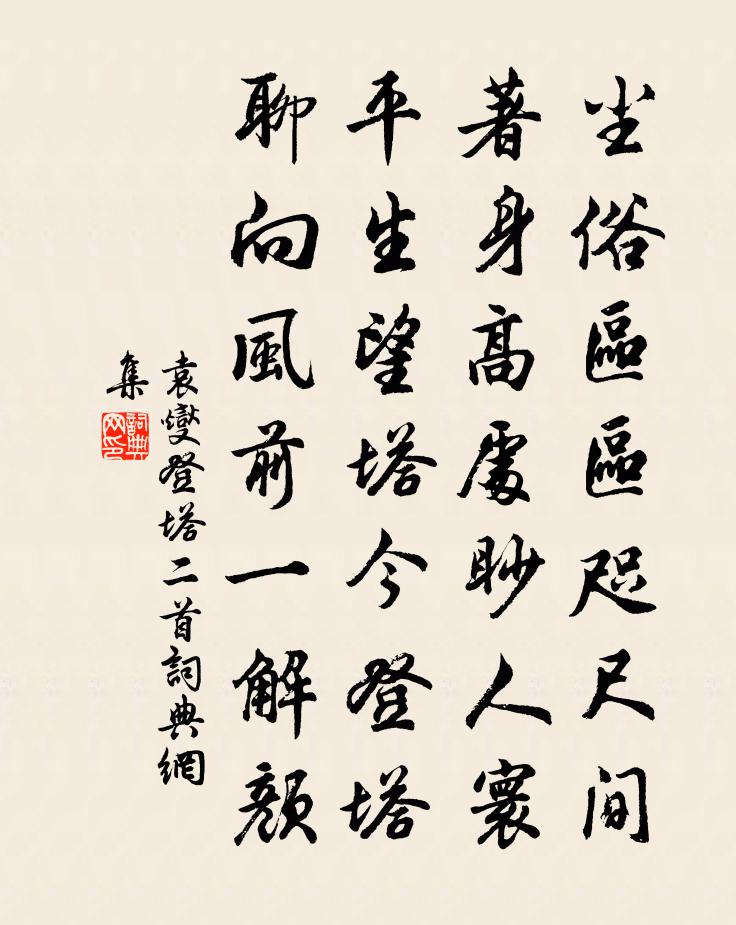 尘俗區區咫尺间
著身高處眇人寰
平生望塔今登塔
聊向風前一解顔
袁燮登塔二首詞典網
集
詞典
网印